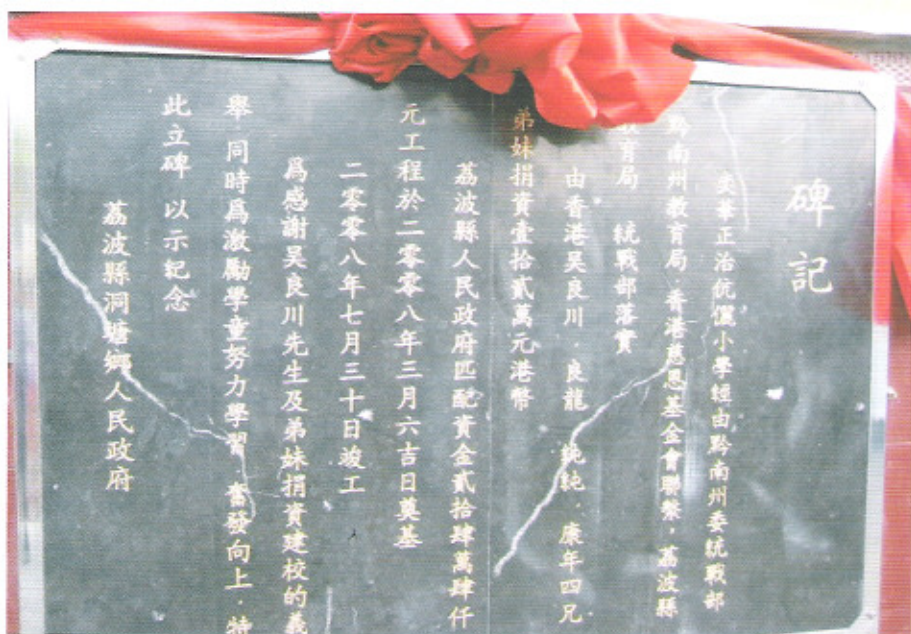 碑記
奕華正治伉儷小學經由黔南州委統戰部
黔南州教育局·香港慈恩基金會聯繫,荔波縣
教育局 統戰部落實
由香港吴良川·良龍 純純·康年四兄
弟妹捐資壹拾貳萬元港幣
荔波縣人民政府匹配資金貳拾肆萬肆仟
元工程於二零零八年三月六吉日奠基
二零零八年七月三十日竣工
爲感謝吴良川先生及弟妹捐資建校的義
舉 同時爲激勵學童努力學習·奮發向上·特
此立碑 以示紀念
荔波縣洞塘鄉人民政府